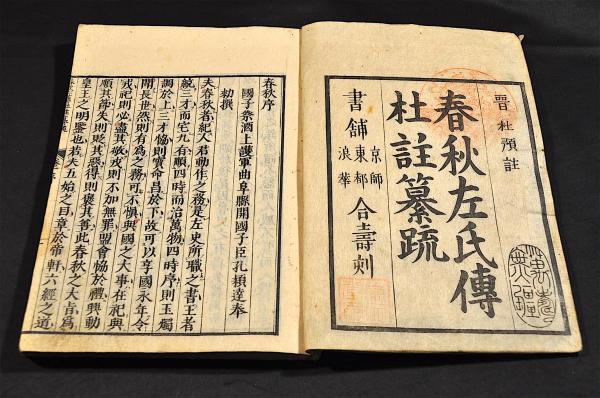 晉 杜預註
春秋左氏傳
杜註纂疏
書舖 京師 東都 浪華 合壽刻
春秋序
國子祭酒上護軍曲阜縣開國子臣孔穎達奉
勅撰
夫春秋者紀人君動作之務是左史所職之書王者
統三才而宅九有順四時而治萬物四時序則玉燭
調於上三才協則寶命昌於下故可以享國永年令
聞長世然則有為之務可不慎與國之大事在祀與
戎祀則必盡其敬戎則不加無罪盟會協於禮興動
順其節失則貶其惡得則褒其善此春秋之大旨為
皇王之明鑒也若夫五始之目章於帝軒六經之道